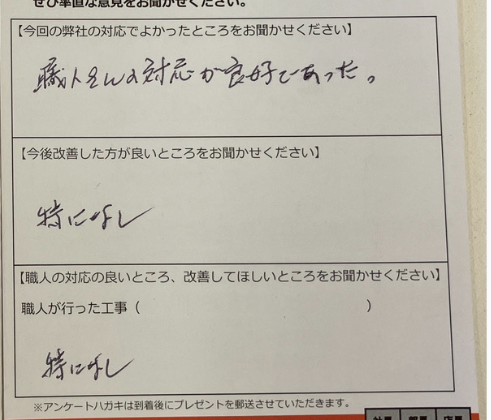 ぜひ率直な意見をお聞かせください。
【今回の弊社の対応でよかったところをお聞かせください】
職人さんの対応が良好であった。
【今後改善した方が良いところをお聞かせください】
特になし
【職人の対応の良いところ、改善してほしいところをお聞かせください】
職人が行った工事（　　　　　　　　　　）
特になし
※アンケートハガキは到着後にプレゼントを郵送させていただきます。